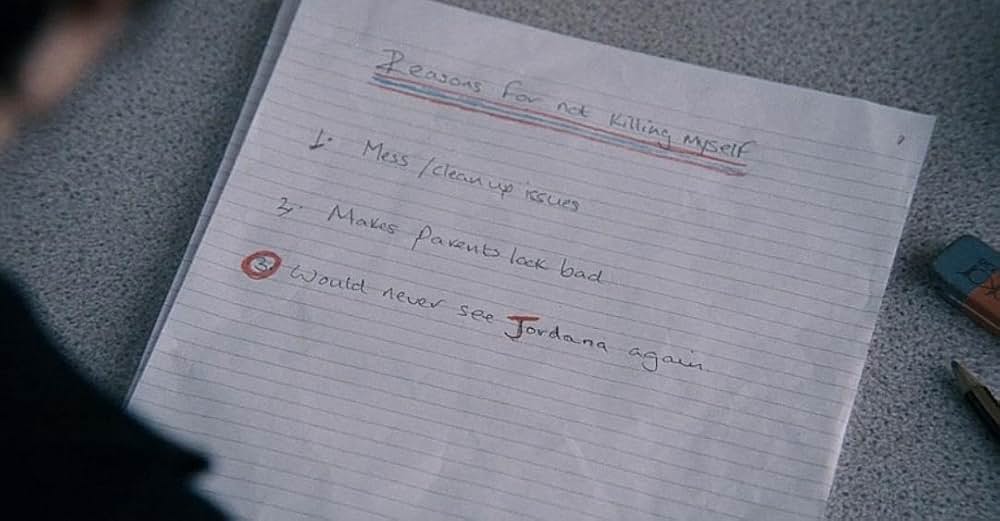 Reasons for not killing myself
1. Mess / clean up issues
2. Makes parents look bad
3. Would never see Jordana again